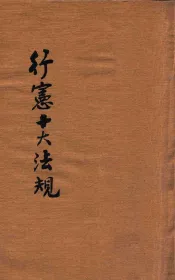 行憲十大法規